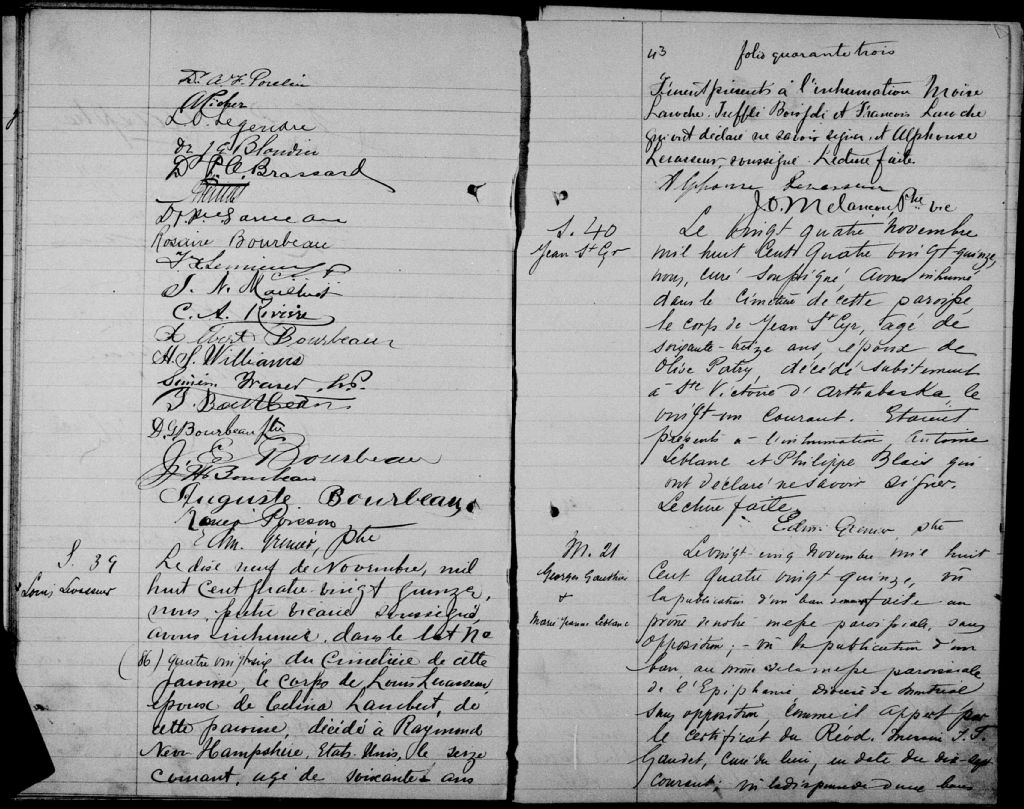 Dr A. F. Poulin
L. O. Legendre
Dr J. G. Blondin
D. P. C. Brassard
Rosaire Bourbeau
C. A. Rivière
Bourbeau
H. S. Williams
Siméon Fraser
D. G. Bourbeau ptre
J. E. Bourbeau
J. H. Bourbeau
Auguste Bourbeau
Poisson
Edm. Grenier, ptre
S. 39
Louis Levasseur
Le dix neuf de Novembre, mil
huit cent quatre vingt quinze,
nous, prêtre vicaire soussigné,
avons inhumer dans le lot No
(86) quatre vingt six du Cimetière de cette
paroisse, le corps de Louis Levasseur
époux de Celina Lambert, de
cette paroisse, décédé à Raymond
New Hampshire, Etats Unis, le seize
courant, agé de soixante ans
43 folio quarante trois
Furent présents à l'inhumation Moïse
Laroche, Boisfdi et François Laroche
qui ont déclaré ne savoir signer, et Alphonse
Levasseur, soussigné. Lecture faite.
Alphonse Levasseur
J. O. Melançon, Ptre vic
S. 40
Jean St Cyr
Le vingt quatre novembre
mil huit cent quatre vingt quinze,
nous, curé soussigné, avons inhumé
dans le cimetière de cette paroisse,
le corps de Jean St Cyr, agé de
soixante-seize ans, époux de
Olive Patry, décédé subitement
à Ste Victoire d'Arthabaska, le
vingt-un courant. Etaient
présents à l'inhumation, Antoine
Leblanc et Philippe Blais qui
ont declaré ne savoir signer.
Lecture faite.
Edm. Grenier, ptre
M. 21
Georges Gauthier
+
Marie Jeanne Leblanc
Le vingt-cinq novembre mil huit-
cent quatre vingt quinze, vû
la publication d'un ban faite au
prône de notre messe paroissiale, sans
opposition; - vû la publication d'un
ban, au prône de la messe paroissiale
de l'Epiphanie, diocèse de Montréal
sans opposition, comme il appert par
le certificat du Révd. Messire F. F.
Gaudet, Curé du lieu, en date du dix-sept
courant; vû la dispense d'un ban